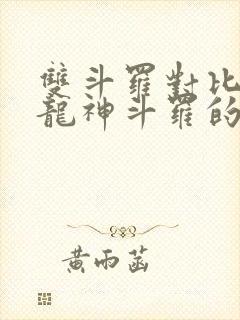 雙斗羅對比
龍神斗羅的
黃雨菡